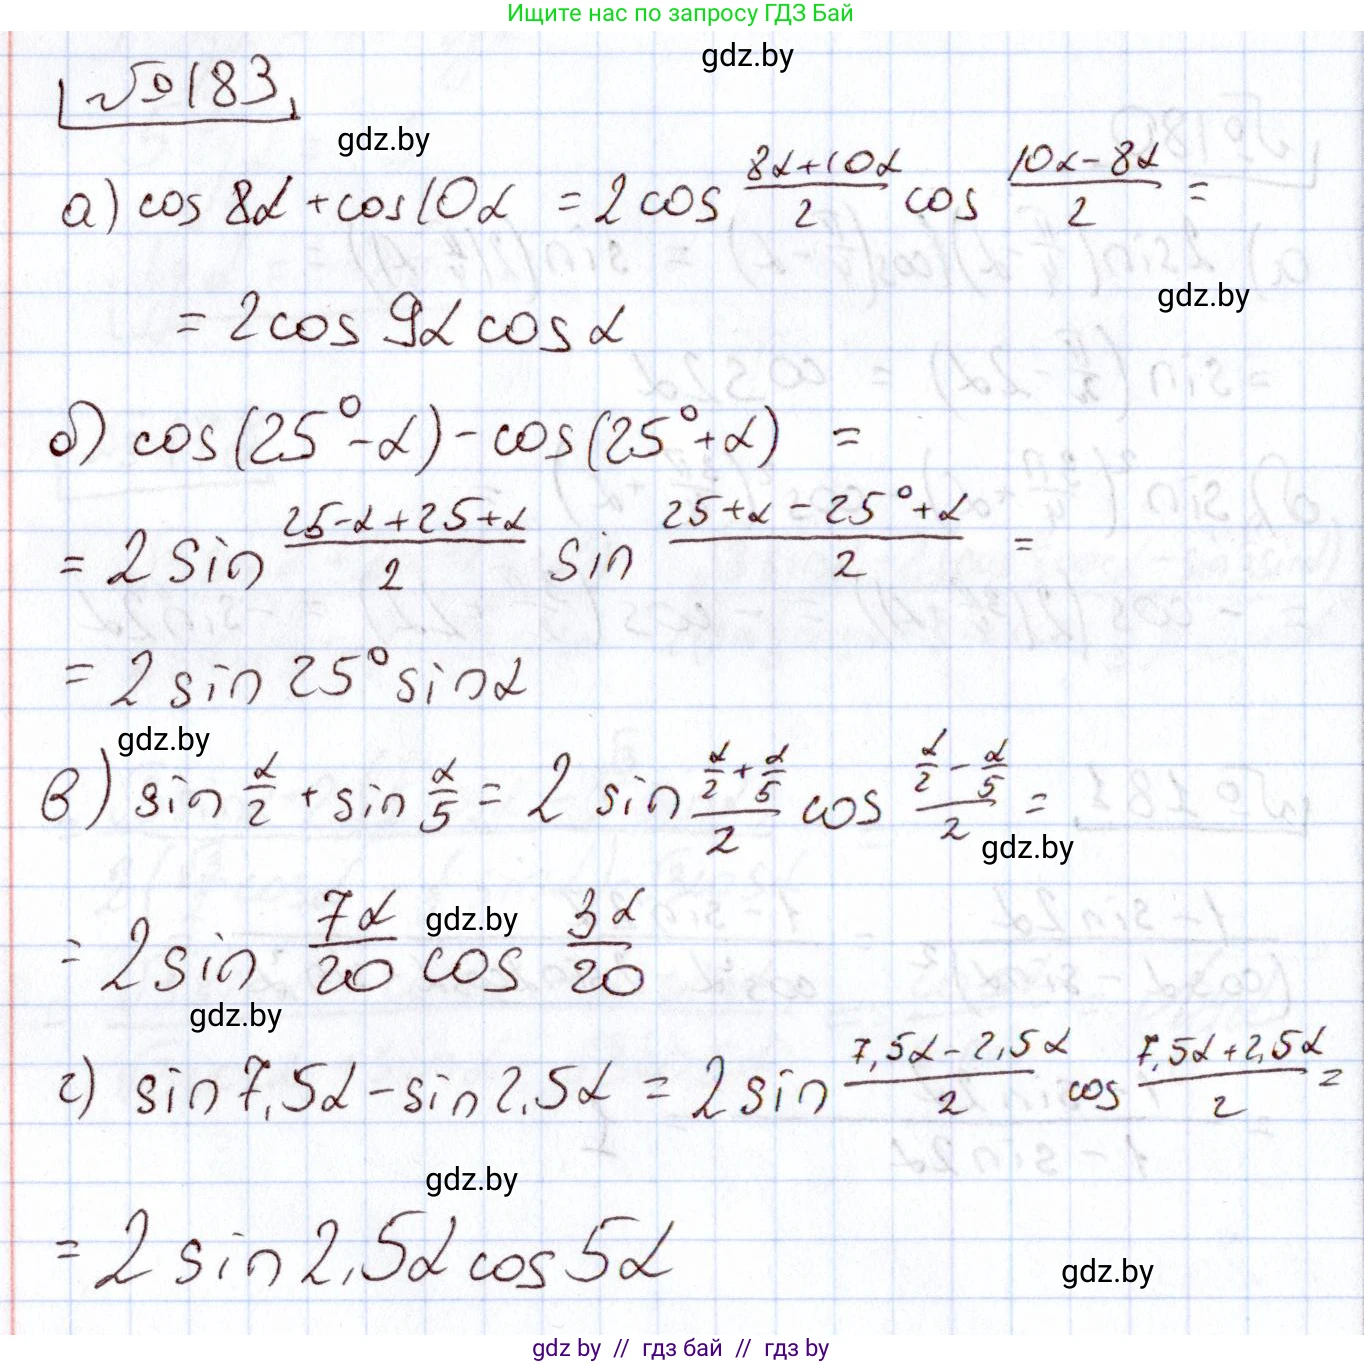 Ищите нас по запросу ГДЗ Бай
gdz.by
№183
gdz.by
а) cos 8α + cos 10α = 2 cos (8α+10α)/2 cos (10α-8α)/2 =
gdz.by
= 2 cos 9α cos α
б) cos(25°-α) - cos(25°+α) =
= 2 sin (25-α+25+α)/2 sin (25+α-25°+α)/2 =
= 2 sin 25° sin α
gdz.by
в) sin α/2 + sin α/5 = 2 sin (α/2+α/5)/2 cos (α/2-α/5)/2 =
gdz.by
= 2 sin 7α/20 cos 3α/20
gdz.by
gdz.by
г) sin 7,5α - sin 2,5α = 2 sin (7,5α-2,5α)/2 cos (7,5α+2,5α)/2 =
gdz.by
= 2 sin 2,5α cos 5α
gdz.by
gdz by // гдз бай // гдз by